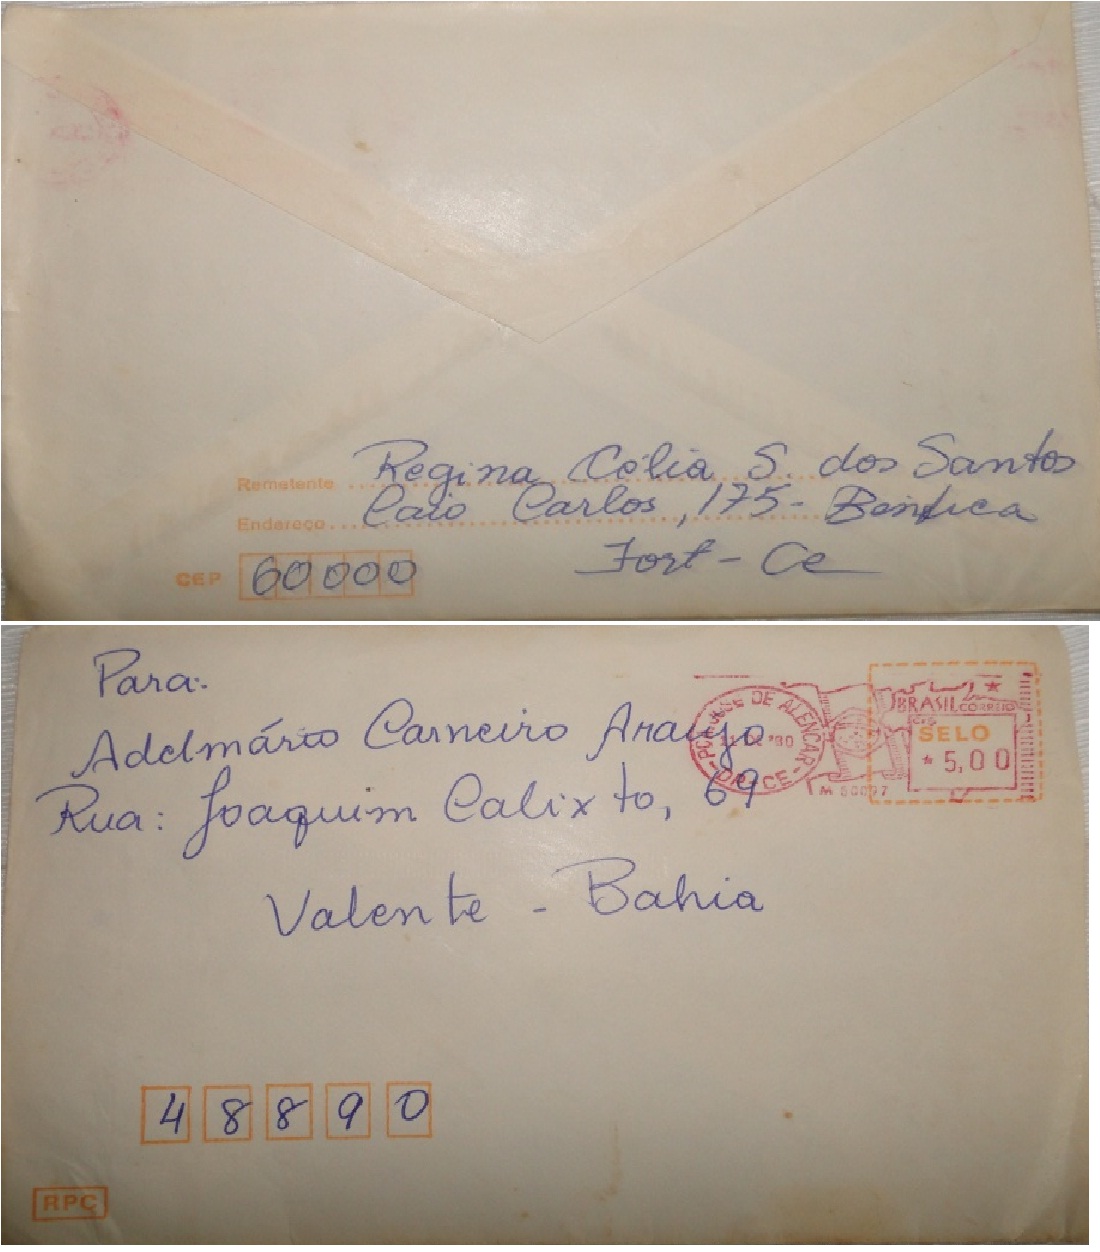 Remetente Regina Célia S. dos Santos
Endereço Caio Carlos, 175 - Benfica
Fort - Ce
CEP 60000
Para:
Adelmário Carneiro Araujo
Rua: Joaquim Calixto, 69
Valente - Bahia
JOSÉ DE ALENCAR
DR/CE
80
BRASIL CORREIO
SELO
* 5,00
48890
RPC